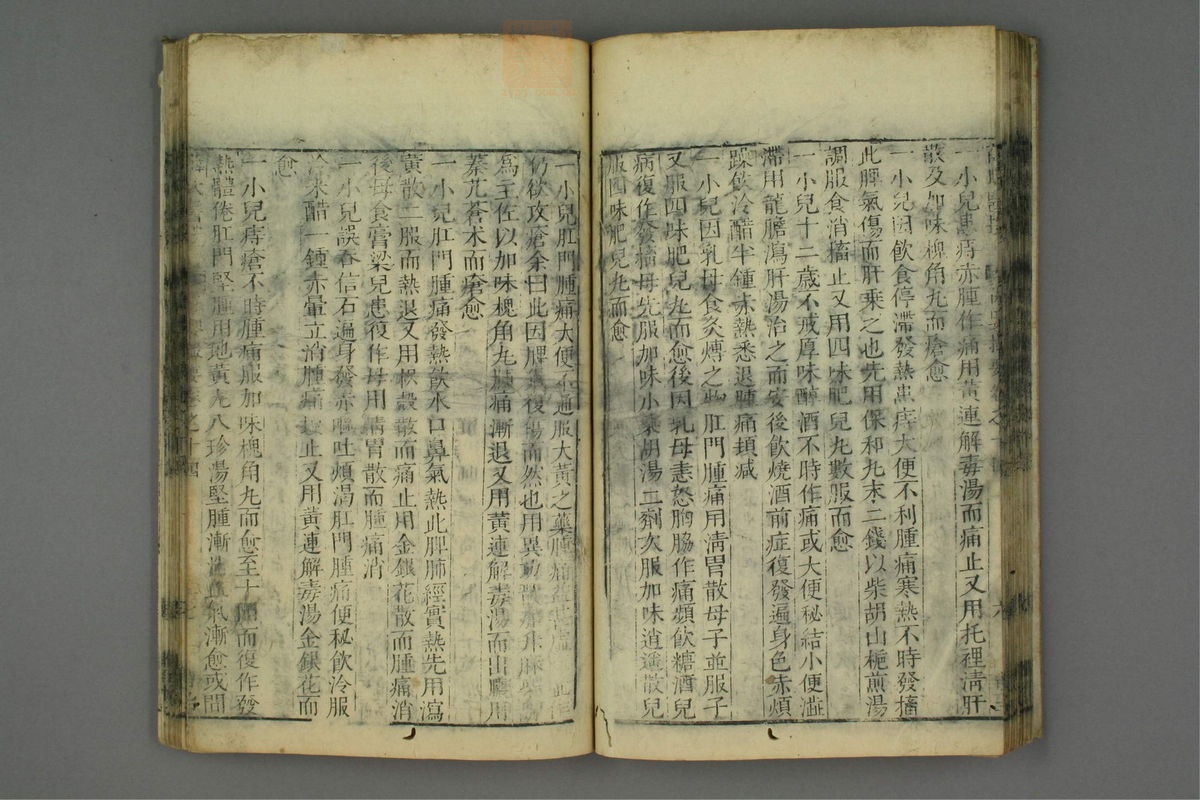 一小兒患痔赤腫作痛用黃連解毒湯而痛止又用托裡清肝
散及加味槐角丸而瘡愈
一小兒因飲食停滯發熱患痔大便不利腫痛寒熱不時發搐
此脾氣傷而肝乘之也先用保和丸末二錢以柴胡山梔煎湯
調服食消搐止又用四味肥兒丸數服而愈
一小兒十二歲不戒厚味醇酒不時作痛或大便秘結小便澁
滯用龍膽瀉肝湯治之而安後飲燒酒前症復發遍身色赤煩
躁飲冷醋半鍾赤熱悉退腫痛頓減
一小兒因乳母食炙煿之物肛門腫痛用清胃散母子並服子
又服四味肥兒丸而愈後因乳母恚怒胸脇作痛頻飲糖酒兒
病復作發搐母先服加味小柴胡湯二劑次服加味逍遙散兒
服四味肥兒丸而愈
一小兒肛門腫痛大便不通服大黃之藥腫痛
仍欲攻瘡余曰此因脾氣復傷而然也用異功散
為主佐以加味槐角丸腫痛漸退又用黃連解毒湯而出膿用
秦艽蒼术而瘡愈
一小兒肛門腫痛發熱飲水口鼻氣熱此脾肺經實熱先用瀉
黃散二服而熱退又用枳殼散而痛止用金銀花散而腫痛消
後母食膏梁兒患復作母用清胃散而腫痛消
一小兒誤吞信石遍身發赤嘔吐煩渴肛門腫痛便秘飲冷服
冷米醋一鍾赤暈立消腫痛止又用黃連解毒湯金銀花而
愈
一小兒痔瘡不時腫痛服加味槐角丸而愈至十而復作發
熱體倦肛門堅腫用地黃丸八珍湯堅腫漸氣漸愈或間